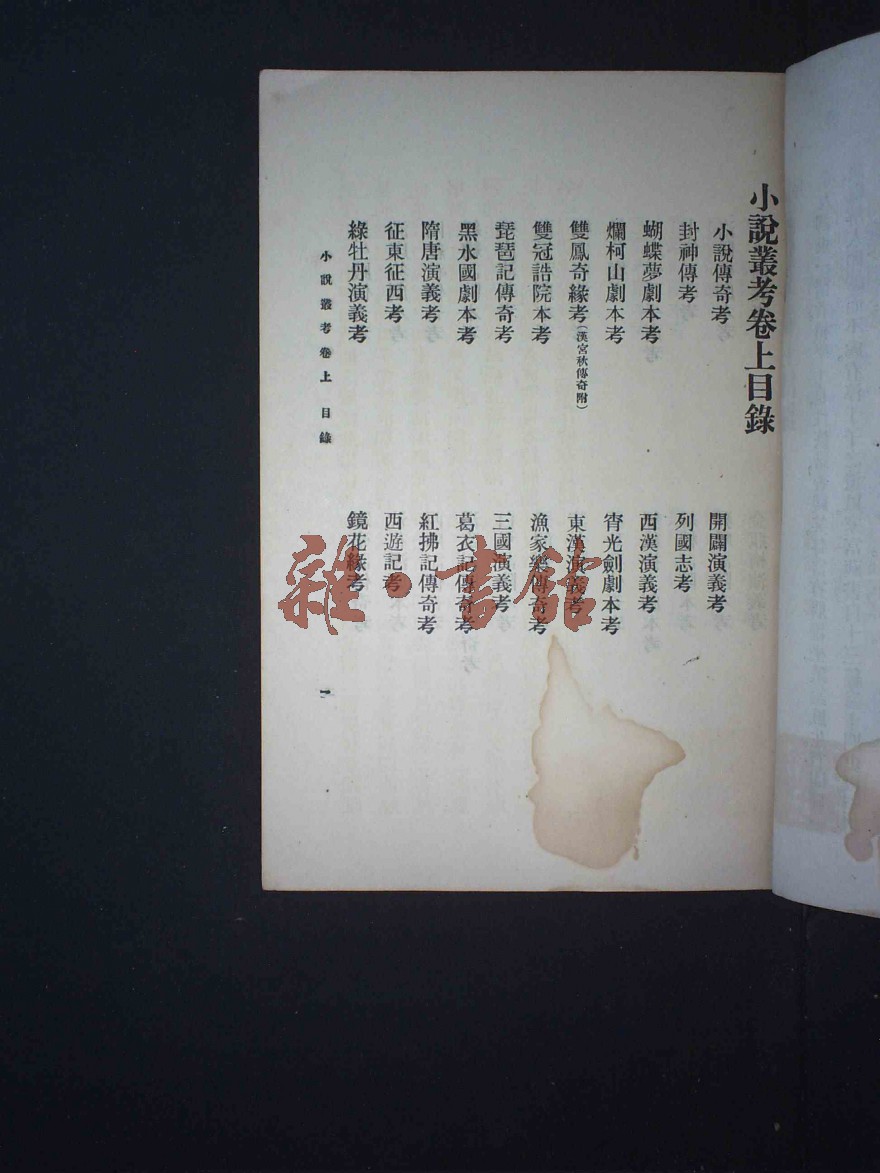 小說叢考卷上目錄
小說傳奇考
開闢演義考
封神傳考
列國志考
蝴蝶夢劇本考
西漢演義考
爛柯山劇本考
宵光劍劇本考
雙鳳奇緣考(漢宮秋傳奇附)
東漢演義考
雙冠誥院本考
漁家樂傳奇考
琵琶記傳奇考
三國演義考
黑水國劇本考
葛衣記傳奇考
隋唐演義考
紅拂記傳奇考
征東征西考
西遊記考
綠牡丹演義考
鏡花緣考
小說叢考卷上 目錄
一
雜·書館